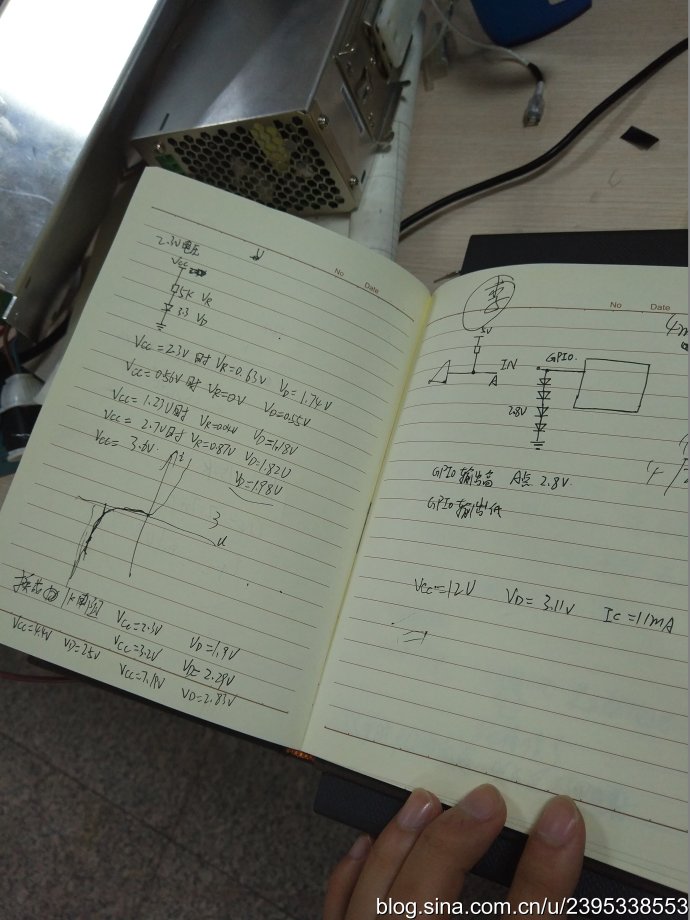 2.3V电压
Vcc
5K VR
3.3 VD
No Date
Vcc=2.3V时 VR=0.63V VD=1.74V
Vcc=0.56V时 VR=0V VD=0.55V
Vcc=1.23V时 VR=0.04V VD=1.18V
Vcc=2.7V时 VR=0.87V VD=1.82V
Vcc=3.6V. VD=1.98V
3
u
1K电阻 Vcc=2.3V VD=1.9V
Vcc=3.2V VD=2.29V
Vcc=4.4V VD=2.5V Vcc=7.19V VD=2.83V
No Date
5V
IN GPIO.
A
2.8V
GPIO输出高 A点 2.8V.
GPIO输出低
Vcc=12V VD=3.11V Ic=11mA
blog.sina.com.cn/u/2395338553